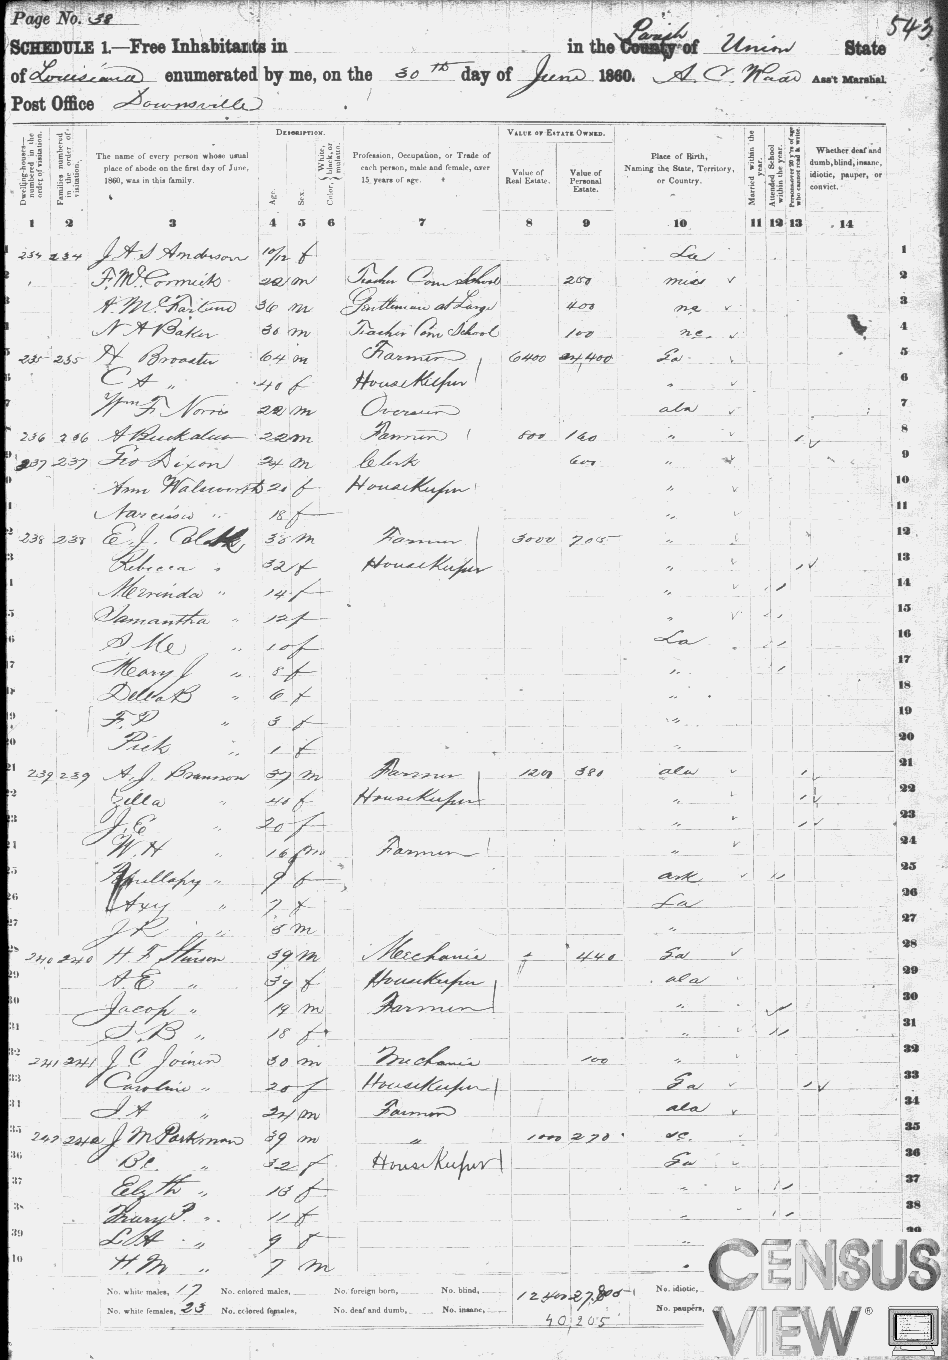 Page No. 38
543
SCHEDULE 1.—Free Inhabitants in in the County Parish of Union State
of Louisiana enumerated by me, on the 30th day of June 1860. Ass't Marshal.
Post Office Downsville
Dwelling-houses— numbered in the order of visitation.
Families numbered in the order of visitation.
The name of every person whose usual place of abode on the first day of June, 1860, was in this family.
DESCRIPTION.
Age.
Sex.
Color, White, black, or mulatto.
Profession, Occupation, or Trade of each person, male and female, over 15 years of age.
VALUE OF ESTATE OWNED.
Value of Real Estate.
Value of Personal Estate.
Place of Birth, Naming the State, Territory, or Country.
Married within the year.
Attended School within the year.
Persons over 20 y'rs of age who cannot read & write.
Whether deaf and dumb, blind, insane, idiotic, pauper, or convict.
1 2 3 4 5 6 7 8 9 10 11 12 13 14
1 234 234 J A S Anderson 10/12 f La 1
2 F. McCormick 22 m Teacher Com School 250 miss 2
3 A. McFarland 36 m Gentleman at Large 400 nc 3
4 N A Baker 30 m Teacher Com School 100 nc. 4
5 235 235 H 64 m Farmer 6400 24,400 Ga 5
6 C A " 40 f HouseKeeper " 6
7 Wm F. Norris 22 m Overseer ala 7
8 236 236 A 22 m Farmer 800 160 " 1 8
9 237 237 Geo Dixon 24 m Clerk 600 " 9
Ann Walsworth 20 f HouseKeeper " 10
11 Narcissa " 18 f " 11
238 238 E. J. 35 m Farmer 3000 705 " 12
Rebecca " 32 f HouseKeeper " 1 13
Merinda " 14 f " 1 14
Samantha " 12 f " 1 15
" 10 f La 1 16
17 Mary J " 8 f " 1 17
Della B " 6 f " 18
F. P " 3 f " 19
20 Pick " 1 f " 20
21 239 239 A. J. Brannon 37 m Farmer 1200 380 ala 1 21
22 Zilla " 40 f HouseKeeper " 1 22
23 J. E " 20 f " 1 23
24 W. H " 16 m Farmer " 24
25 " 9 f ark 1 25
26 Axy " 7 f La 26
27 J R " 5 m " 27
28 240 240 H F Stinson 39 m Mechanic 440 Ga 28
29 A. E " 39 f HouseKeeper ala 29
30 Jacop " 19 m Farmer " 30
31 S. B " 18 f " 1 31
32 241 241 J. C Joiner 30 m Mechanic 100 " 32
33 Caroline " 20 f HouseKeeper Ga 1 33
34 J A " 24 m Farmer ala 34
35 242 242 J M Parkman 39 m " 1000 270 sc. 35
36 " 32 f HouseKeeper Ga 36
37 Elzth " 13 f " 1 37
38 Mary P. " 11 f " 1 38
39 L A " 9 f " 39
H. M " 7 m "
No. white males, 17 No. colored males, No. foreign born, No. blind, No. idiotic,
No. white females, 23 No. colored females, No. deaf and dumb, No. insane, No. paupers,
40,205
CENSUS
VIEW®